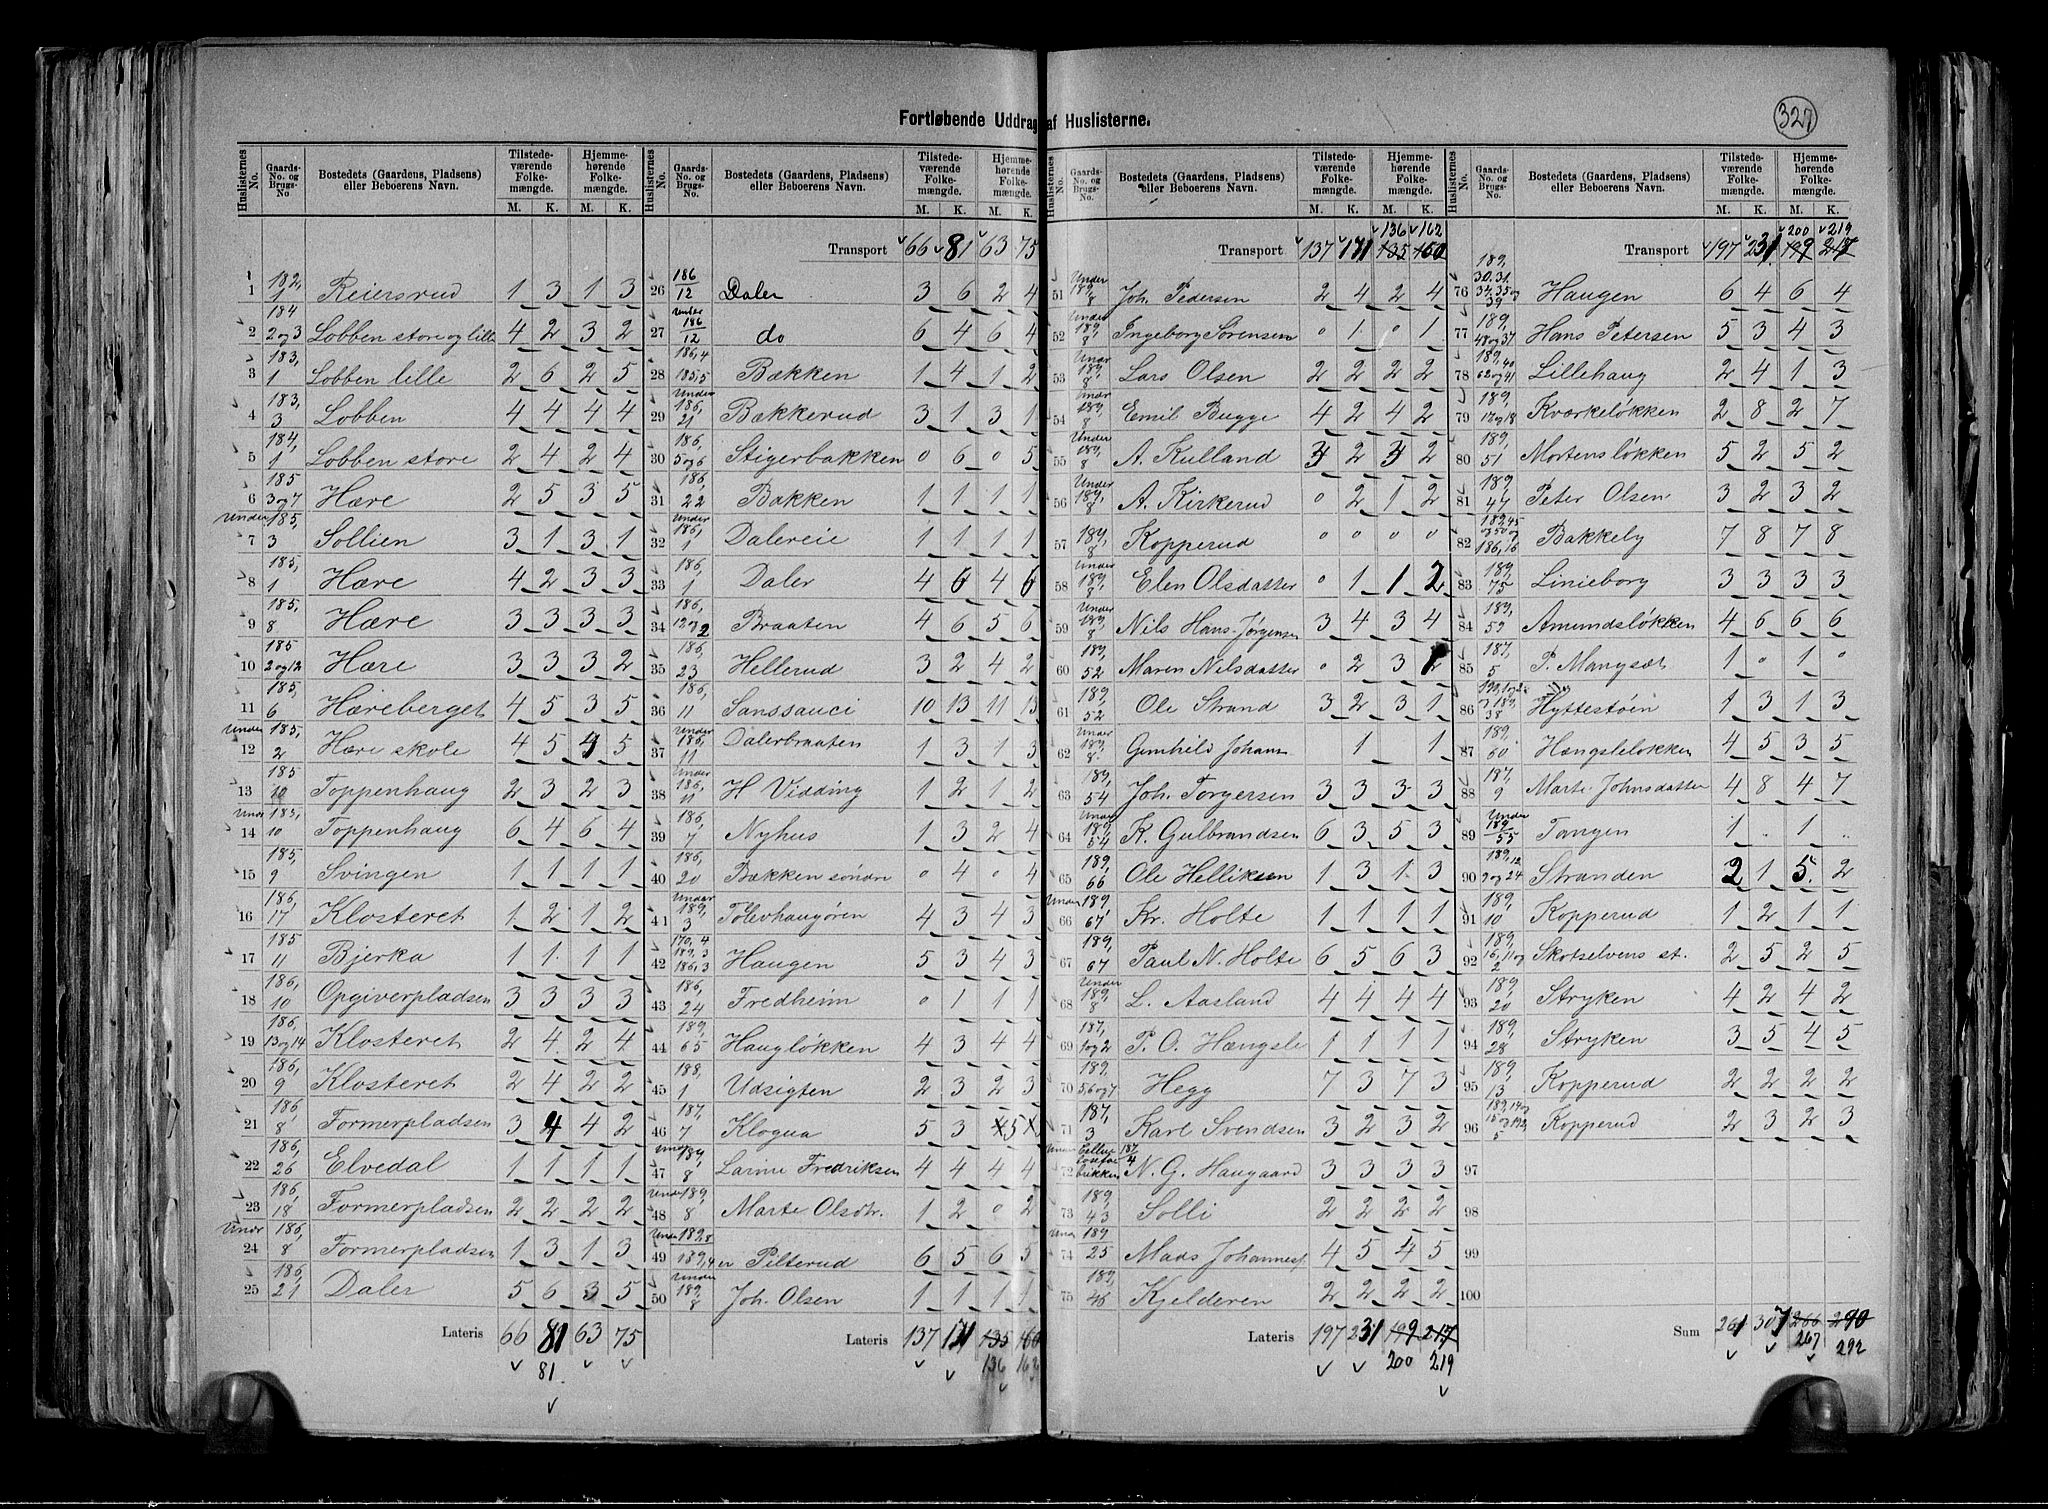 327
Fortløbende Uddrag af Huslisterne.
Huslisternes No. Gaards-No. og Brugs-No Bostedets (Gaardens, Pladsens) eller Beboerens Navn. Tilstedeværende Folkemængde. M. K. Hjemmehørende Folkemængde. M. K.
1 182, 1 Reiersrud 1 3 1 3
2 184 2 og 3 Lobben store og lille 4 2 3 2
3 183, 1 Lobben lille 2 6 2 5
4 183, 3 Lobben 4 4 4 4
5 184, 1 Lobben store 2 4 2 4
6 185 3 og 7 Hære 2 5 3 5
7 Under 185, 3 Sollien 3 1 3 1
8 185, 1 Hære 4 2 3 3
9 185, 8 Hære 3 3 3 3
10 185 2 og 12 Hære 3 3 3 2
11 185, 6 Hæreberget 4 5 3 5
12 Under 185, 2 Hære skole 4 5 4 5
13 185 10 Toppenhaug 2 3 2 3
14 Under 185, 10 Toppenhaug 6 4 6 4
15 185, 9 Svingen 1 1 1 1
16 186, 17 Klosteret 1 2 1 2
17 185 11 Bjerka 1 1 1 1
18 186, 10 Opgiverpladsen 3 3 3 3
19 186, 13 og 14 Klosteret 2 4 2 4
20 186, 9 Klosteret 2 4 2 2
21 186, 8 Formerpladsen 3 4 4 2
22 186, 26 Elvedal 1 1 1 1
23 186, 18 Formerpladsen 2 2 2 2
24 Under 186, 8 Formerpladsen 1 3 1 3
25 186, 21 Daler 5 6 3 5
Lateris 66 81 63 75
81
Huslisternes No. Gaards-No. og Brugs-No. Bostedets (Gaardens, Pladsens) eller Beboerens Navn. Tilstedeværende Folkemængde. M. K. Hjemmehørende Folkemængde. M. K.
Transport 66 81 63 75
26 186 12 Daler 3 6 2 4
27 Under 186 12 do 6 4 6 4
28 186, 4 185, 5 Bækken 1 4 1 2
29 Under 186, 21 Bækkerud 3 1 3 1
30 186, 5 og 6 Stigerbakken 0 6 0 5
31 186, 22 Bakken 1 1 1 1
32 Under 186, 1 Dalereie 1 1 1 1
33 186, 1 Daler 4 6 4 6
34 186, 12 og 2 Braaten 4 6 5 6
35 186, 23 Hellerud 3 2 4 2
36 186, 11 Sanssauci 10 13 11 13
37 Under 186, 11 Dalerbraaten 1 3 1 3
38 Under 186, 11 H Vidding 1 2 1 2
39 186, 7 Nyhus 1 3 2 4
40 186, 20 Bækken søndre 0 4 0 4
41 Under 189, 3 Tolevhaugøren 4 3 4 3
42 170, 4 189, 3 186, 3 Haugen 5 3 4 3
43 186, 24 Fredheim 0 1 1 1
44 189, 65 Haugløkken 4 3 4 4
45 188, 1 Udsigten 2 3 2 3
46 187, 7 Klogua 5 3 5
47 Under 189, 8 Larine Fredriksen 4 4 4 4
48 Under 189, 8 Marte Olsdtr. 1 2 0 2
49 Under 189, 8 189, 4 er Pilterud 6 5 6 5
50 Under 189, 8 Joh. Olsen 1 1 1 1
Lateris 137 171 135 160
136 162
Huslisternes No. Gaards-No. og Brugs-No. Bostedets (Gaardens, Pladsens) eller Beboerens Navn. Tilstedeværende Folkemængde. M. K. Hjemmehørende Folkemængde. M. K.
136 162
Transport 137 171 135 160
51 Under 189, 8 Joh. Pedersen 2 4 2 4
52 Under 189, 8 Ingeborg Sørensen 0 1 0 1
53 Under 189, 8 Lars Olsen 2 2 2 2
54 Under 189, 8 Emil Bugge 4 2 4 2
55 Under 189, 8 A. Kulland 3 2 3 2
56 Under 189, 8 A. Kirkerud 0 2 1 2
57 189, 8 Kopperud 0 0 0 0
58 Under 189, 8 Elen Olsdatter 0 1 1 2
59 Under 189, 8 Nils Hans Jørgensen 3 4 3 4
60 189, 52 Maren Nilsdatter 0 2 3
61 189, 52 Ole Strand 3 2 3 1
62 Under 189, 8 Gunhild Johann 1 1
63 189, 54 Joh. Torgersen 3 3 3 3
64 Under 189, 54 K. Gulbrandsen 6 3 5 3
65 189, 66 Ole Helliksen 1 3 1 3
66 Under 189 67 Kr. Holte 1 1 1 1
67 189, 67 Paul N. Holte 6 5 6 3
68 Under 189, 8 L. Aasland 4 4 4 4
69 187, 1 og 2 P. O. Hængsle 1 1 1 1
70 189, 5, 6 og 7 Hegg 7 3 7 3
71 187, 3 Karl Svendsen 3 2 3 2
72 Under 187, 4 N. G. Haugaard 3 3 3 3
73 189, 43 Solli 2 2 2 2
74 Under 189 25 Mads Johannes 4 5 4 5
75 189, 46 Kjelderen 2 2 2 2
Lateris 197 231 199 217
200 219
Huslisternes No. Gaards-No. og Brugs-No. Bostedets (Gaardens, Pladsens) eller Beboerens Navn. Tilstedeværende Folkemængde. M. K. Hjemmehørende Folkemængde. M. K.
200 219
Transport 197 231 199 217
76 189, 30, 31, 34, 35 og 39 Haugen 6 4 6 4
77 189, 48 og 37 Hans Petersen 5 3 4 3
78 189, 40 62 og 41 Lillehaug 2 4 1 3
79 189, 17 og 18 Kværkeløkken 2 8 2 7
80 189, 51 Mortensløkken 5 2 5 2
81 189, 44 Peter Olsen 3 2 3 2
82 189, 45 og 50 og 186, 16 Bakkeby 7 8 7 8
83 189, 75 Linieborg 3 3 3 3
84 189, 59 Amundsløkken 4 6 6 6
85 187, 5 P. Mangset 1 0 1 0
86 190, 1 og 2 og 189, 38 Hyttestøen 1 3 1 3
87 189, 60 Hængsleløkken 4 5 3 5
88 187, 9 Marte Johnsdatter 4 8 4 7
89 Under 189 55 Tangen 1 " 1 "
90 189, 12 9 og 24 Stranden 2 1 5 2
91 189, 10 Kopperud 1 2 1 1
92 189, 16, 11 og 2 Skotselvens st. 2 5 2 5
93 189, 20 Stryken 4 2 4 2
94 189, 28 Stryken 3 5 4 5
95 189, 13 Kopperud 2 2 2 2
96 189, 14 og 15 og 193, 5 Kopperud 2 3 2 3
97
98
99
100
Sum 261 307 266 290
267 292